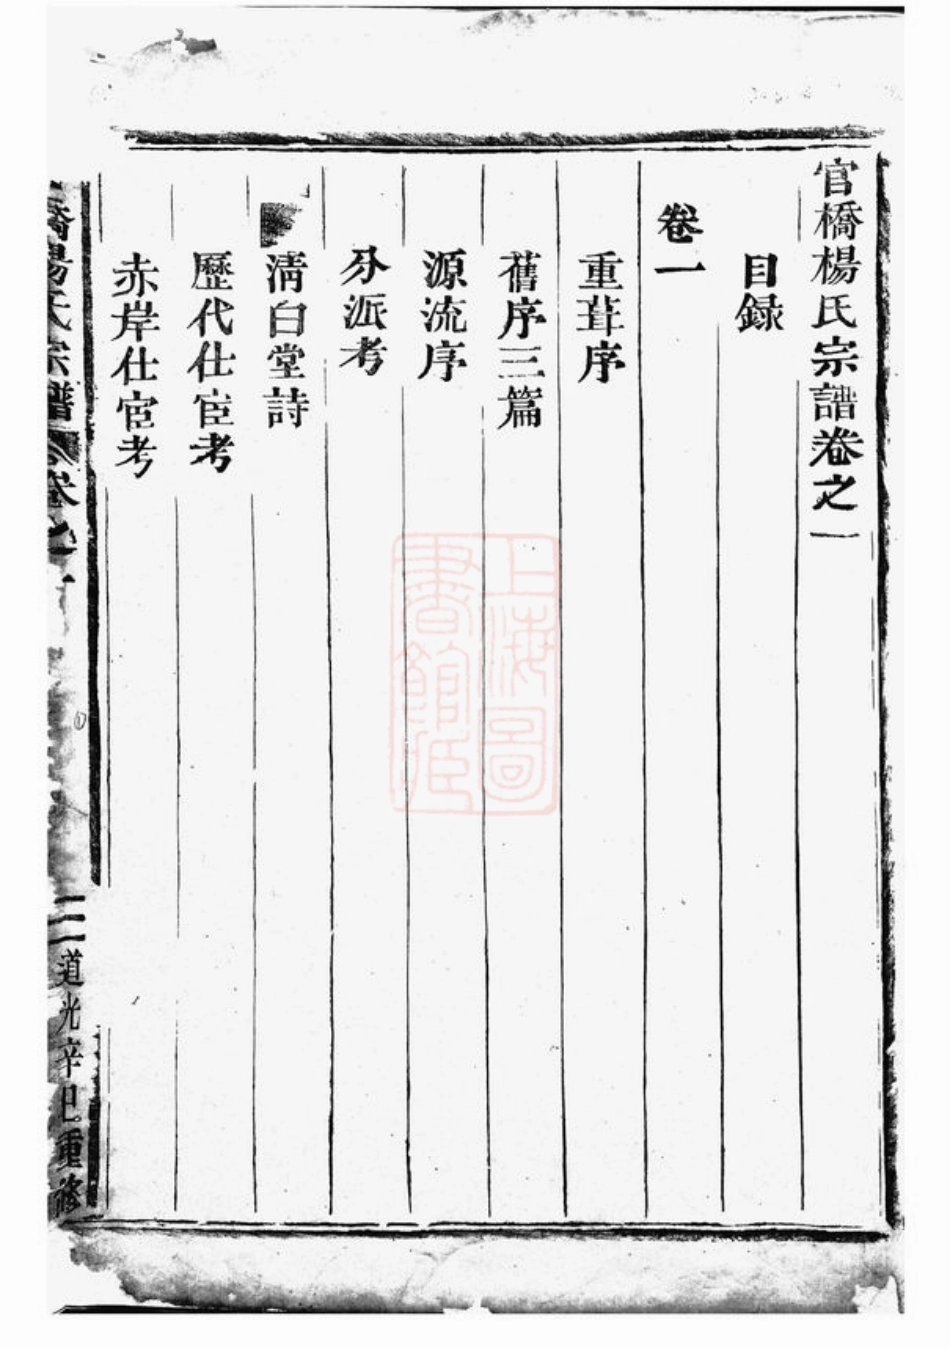 官橋楊氏宗譜卷之一
目録
卷一
重葺序
舊序三篇
源流序
分派考
清白堂詩
歷代仕宦考
赤岸仕宦考
橋楊氏宗譜
卷之一
二
道光辛巳重修
上海圖
書館藏